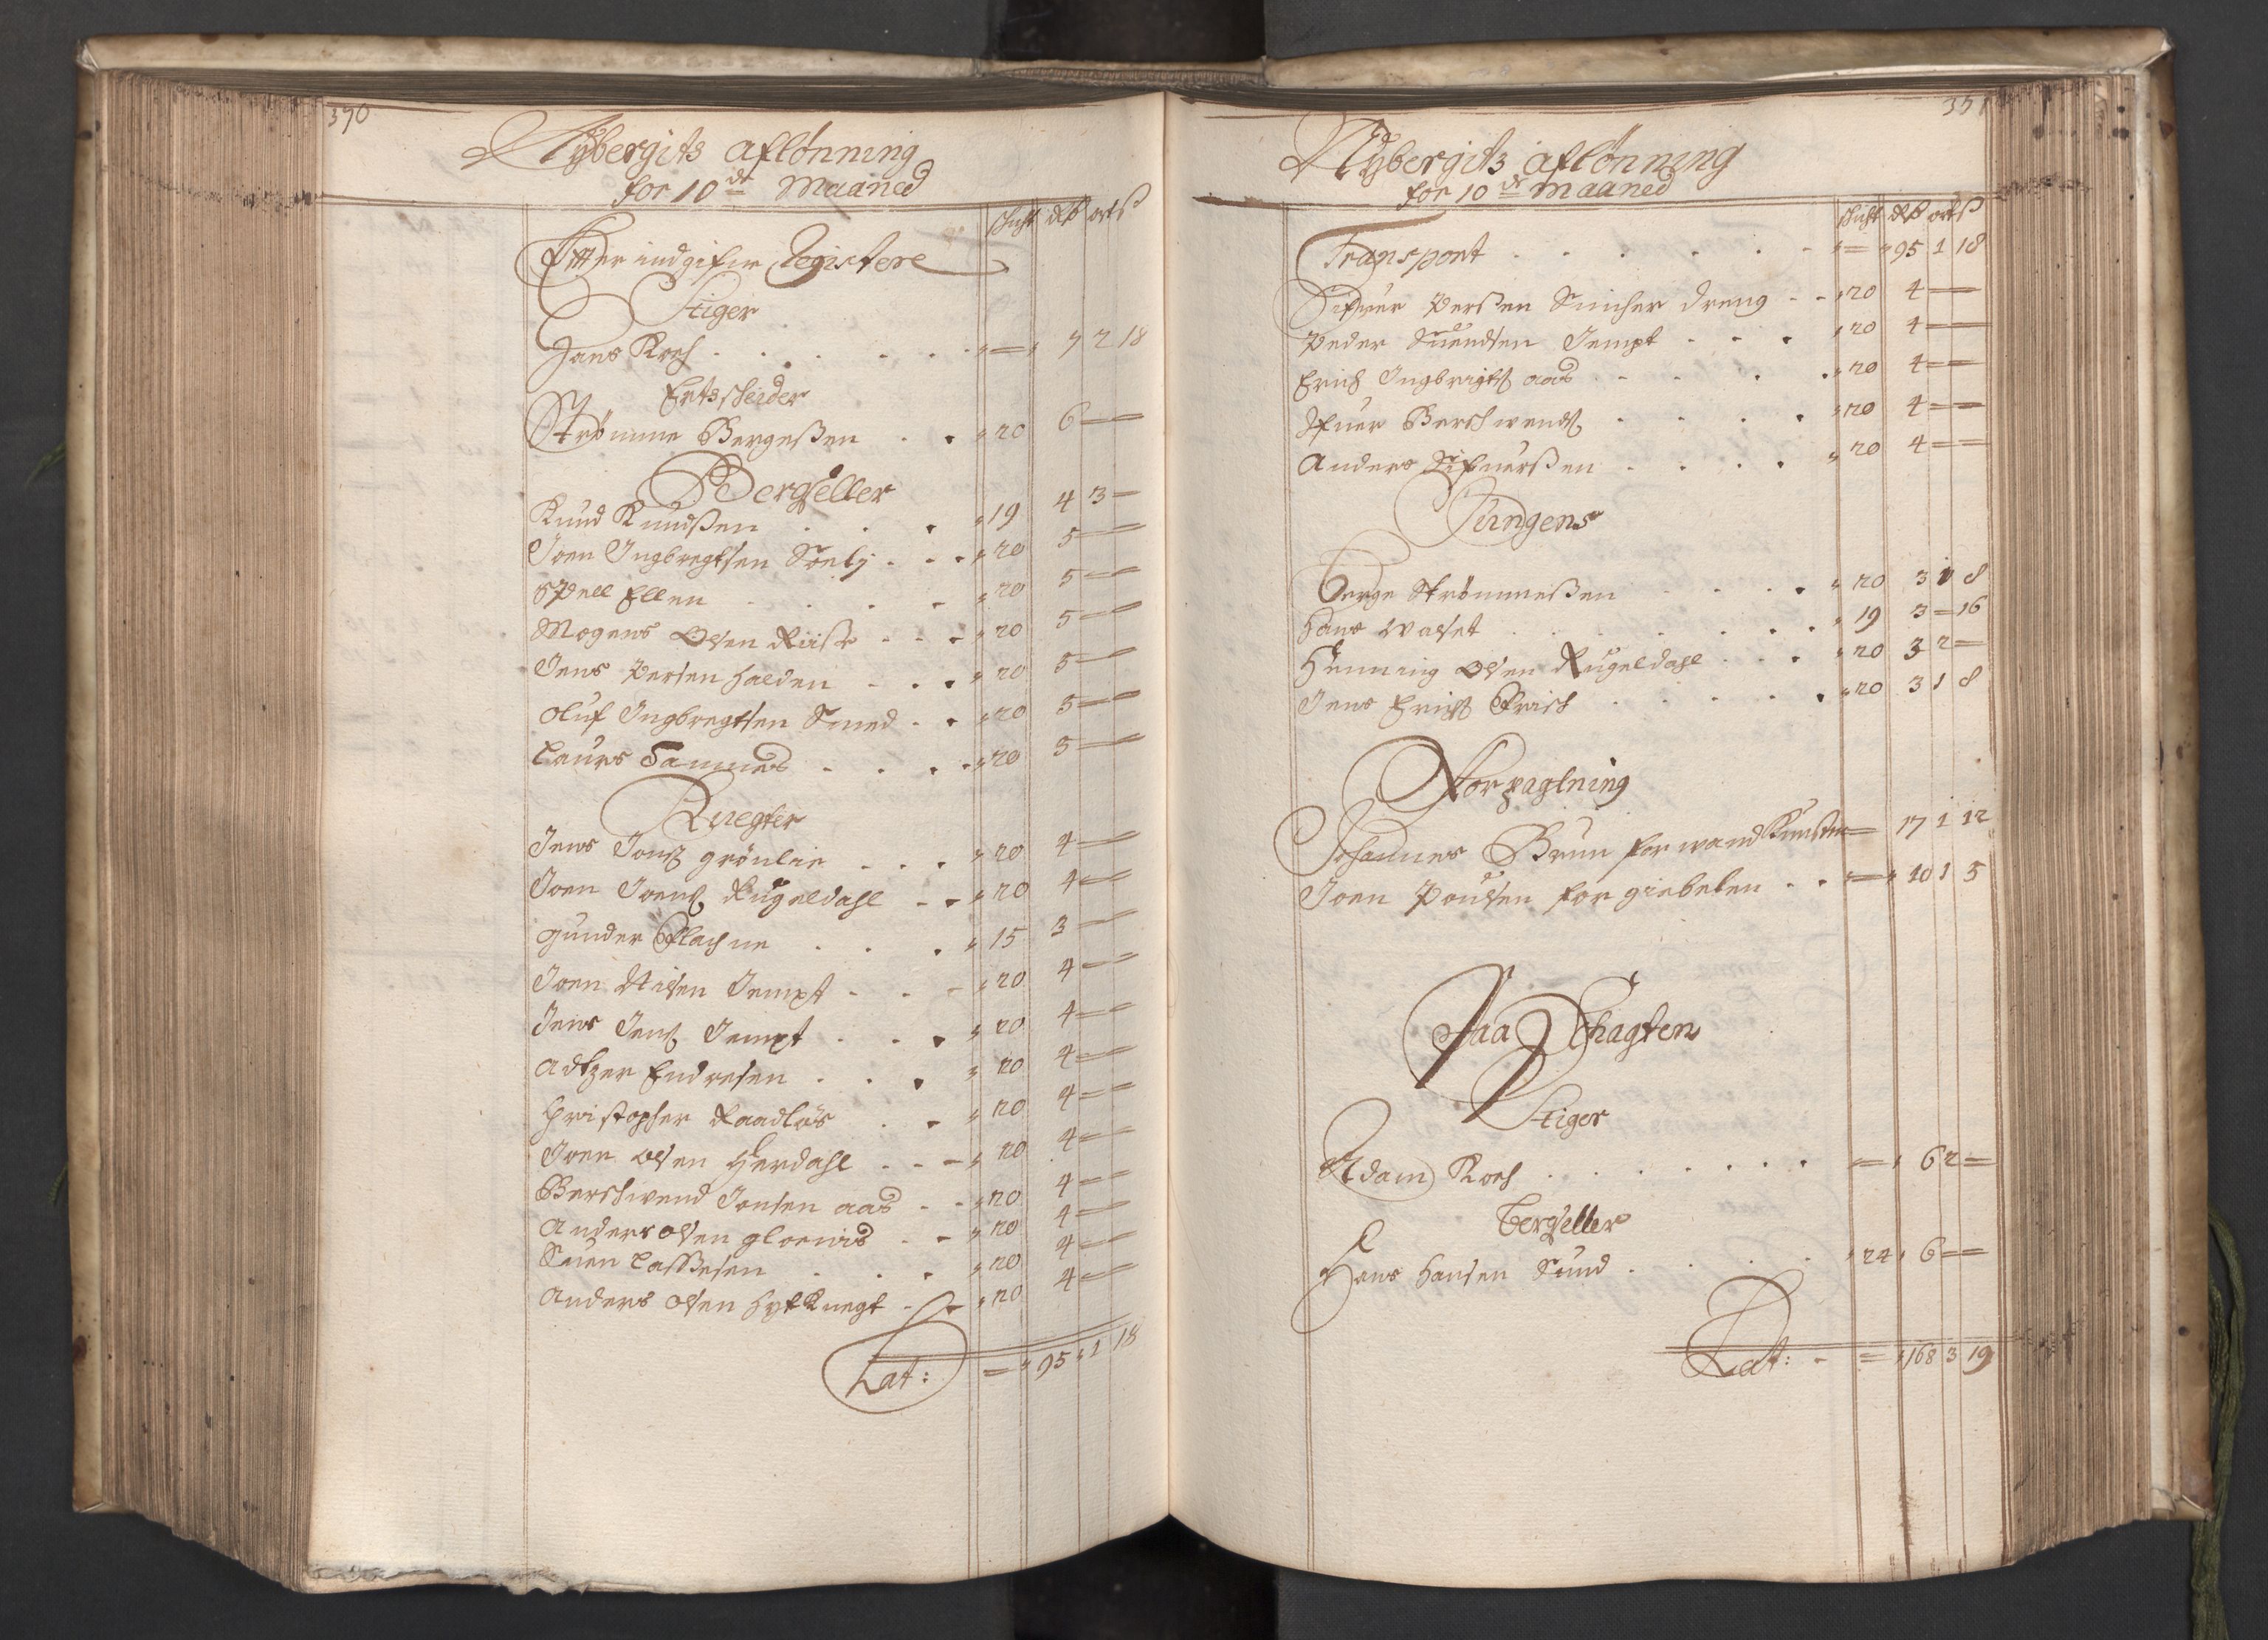 370
Nybergits aflønning
for 10de Maaned
schicht dlr ort ß
Effter indgifne Registere
Stiger
Hans Koch . . . . . = 7 2 18
Ertzscheider
Strømme Bergeßen . . 20 6 =
Bergseller
Knud Knudßen . . . 19 4 3 =
Joen Ingbregtsen Soelj . . . 20 5 =
Spell Ellen . . . . 20 5 =
Mogens Olsen Riise . . . 20 5 =
Jens Persen Halden . . . 20 5 =
Oluf Ingbregtsen Smed . . 20 5 =
Laurs Sammes . . . . 20 5 =
Knegter
Jens Jonß grönlie . . . 20 4 =
Joen Joenß Rugeldahl . . 20 4 =
Gunder Flachne . . . 15 3 =
Joen Nilsen Jempt . . . 20 4 =
Jens Jenß Jempt . . . 20 4 =
Adtzer Endresen . . . 20 4 =
Christopher Raadløs . . 20 4 =
Joen Olsen Herdahl . . . 20 4 =
Berschwend Jonsen aas . . 20 4 =
Anders Olsen gloemis . . 20 4 =
Suen Lassesen . . . 20 4 =
Anders Olsen Hytknegt . . 20 4 =
Lat: = 95 1 18
371
Nybergits aflønning
for 10de Maaned
schicht dlr ort ß
Transport . . . . . . = 95 1 18
Sifuer Perßen Smicher dreng . . 20 4 =
Peder Suendsen Jempt . . . 20 4 =
Erich Ingbrigtß aas . . . . 20 4 =
Ifuer Berschwendß . . . . 20 4 =
Anders Sifuerßen . . . . 20 4 =
Jungens
Berge Strømmeßen . . . . 20 3 1 8
Hans Walset . . . . . . 19 3 = 16
Henning Olsen Rugeldahl . . . 20 3 2 =
Jens Erichß Frisch . . . . . 20 3 1 8
Forpagtning
Johannes Brun for wand Kunsten = 17 1 12
Joen Poulsen for giebelen . . = 10 1 5
Paa Schagten
Stiger
Adam Koch . . . . . . . = 6 2 =
Bergseller
Hans Hansen Sund . . . . 24 6 =
Lat: = 168 3 19